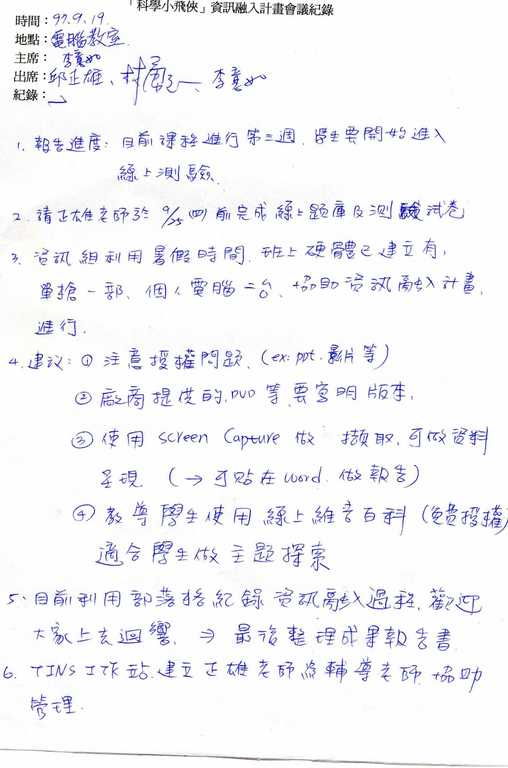 「科學小飛俠」資訊融入計畫會議紀錄
時間：97.9.19.
地點：電腦教室
主席：
出席：邱正雄、
紀錄：
1. 報告進度：目前課程進行第三週，學生要開始進入
線上測驗.
2. 請正雄老師於 9/25 四前完成線上題庫及測驗試卷
3. 資訊組利用暑假時間，班上硬體已建立有，
單槍一部、個人電腦二台、協助資訊融入計畫，
進行.
4. 建議：① 注意授權問題、(ex: ppt. 影片等)
② 廠商提供的，DVD 等要寫明版本，
③ 使用 screen Capture 做 擷取，可做資料
呈現 (→ 可貼在 word. 做報告)
④ 教導學生使用線上維吉百科 (免費授權)
適合學生做主題探索
5. 目前利用部落格紀錄 資訊融入過程，歡迎
大家上去迴響，⇒ 最後整理成果報告書
6. TINS 工作站，建立正雄老師為輔導老師 協助
管理.